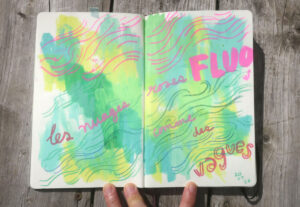 les nuages
roses FLUO
comme des
vagues